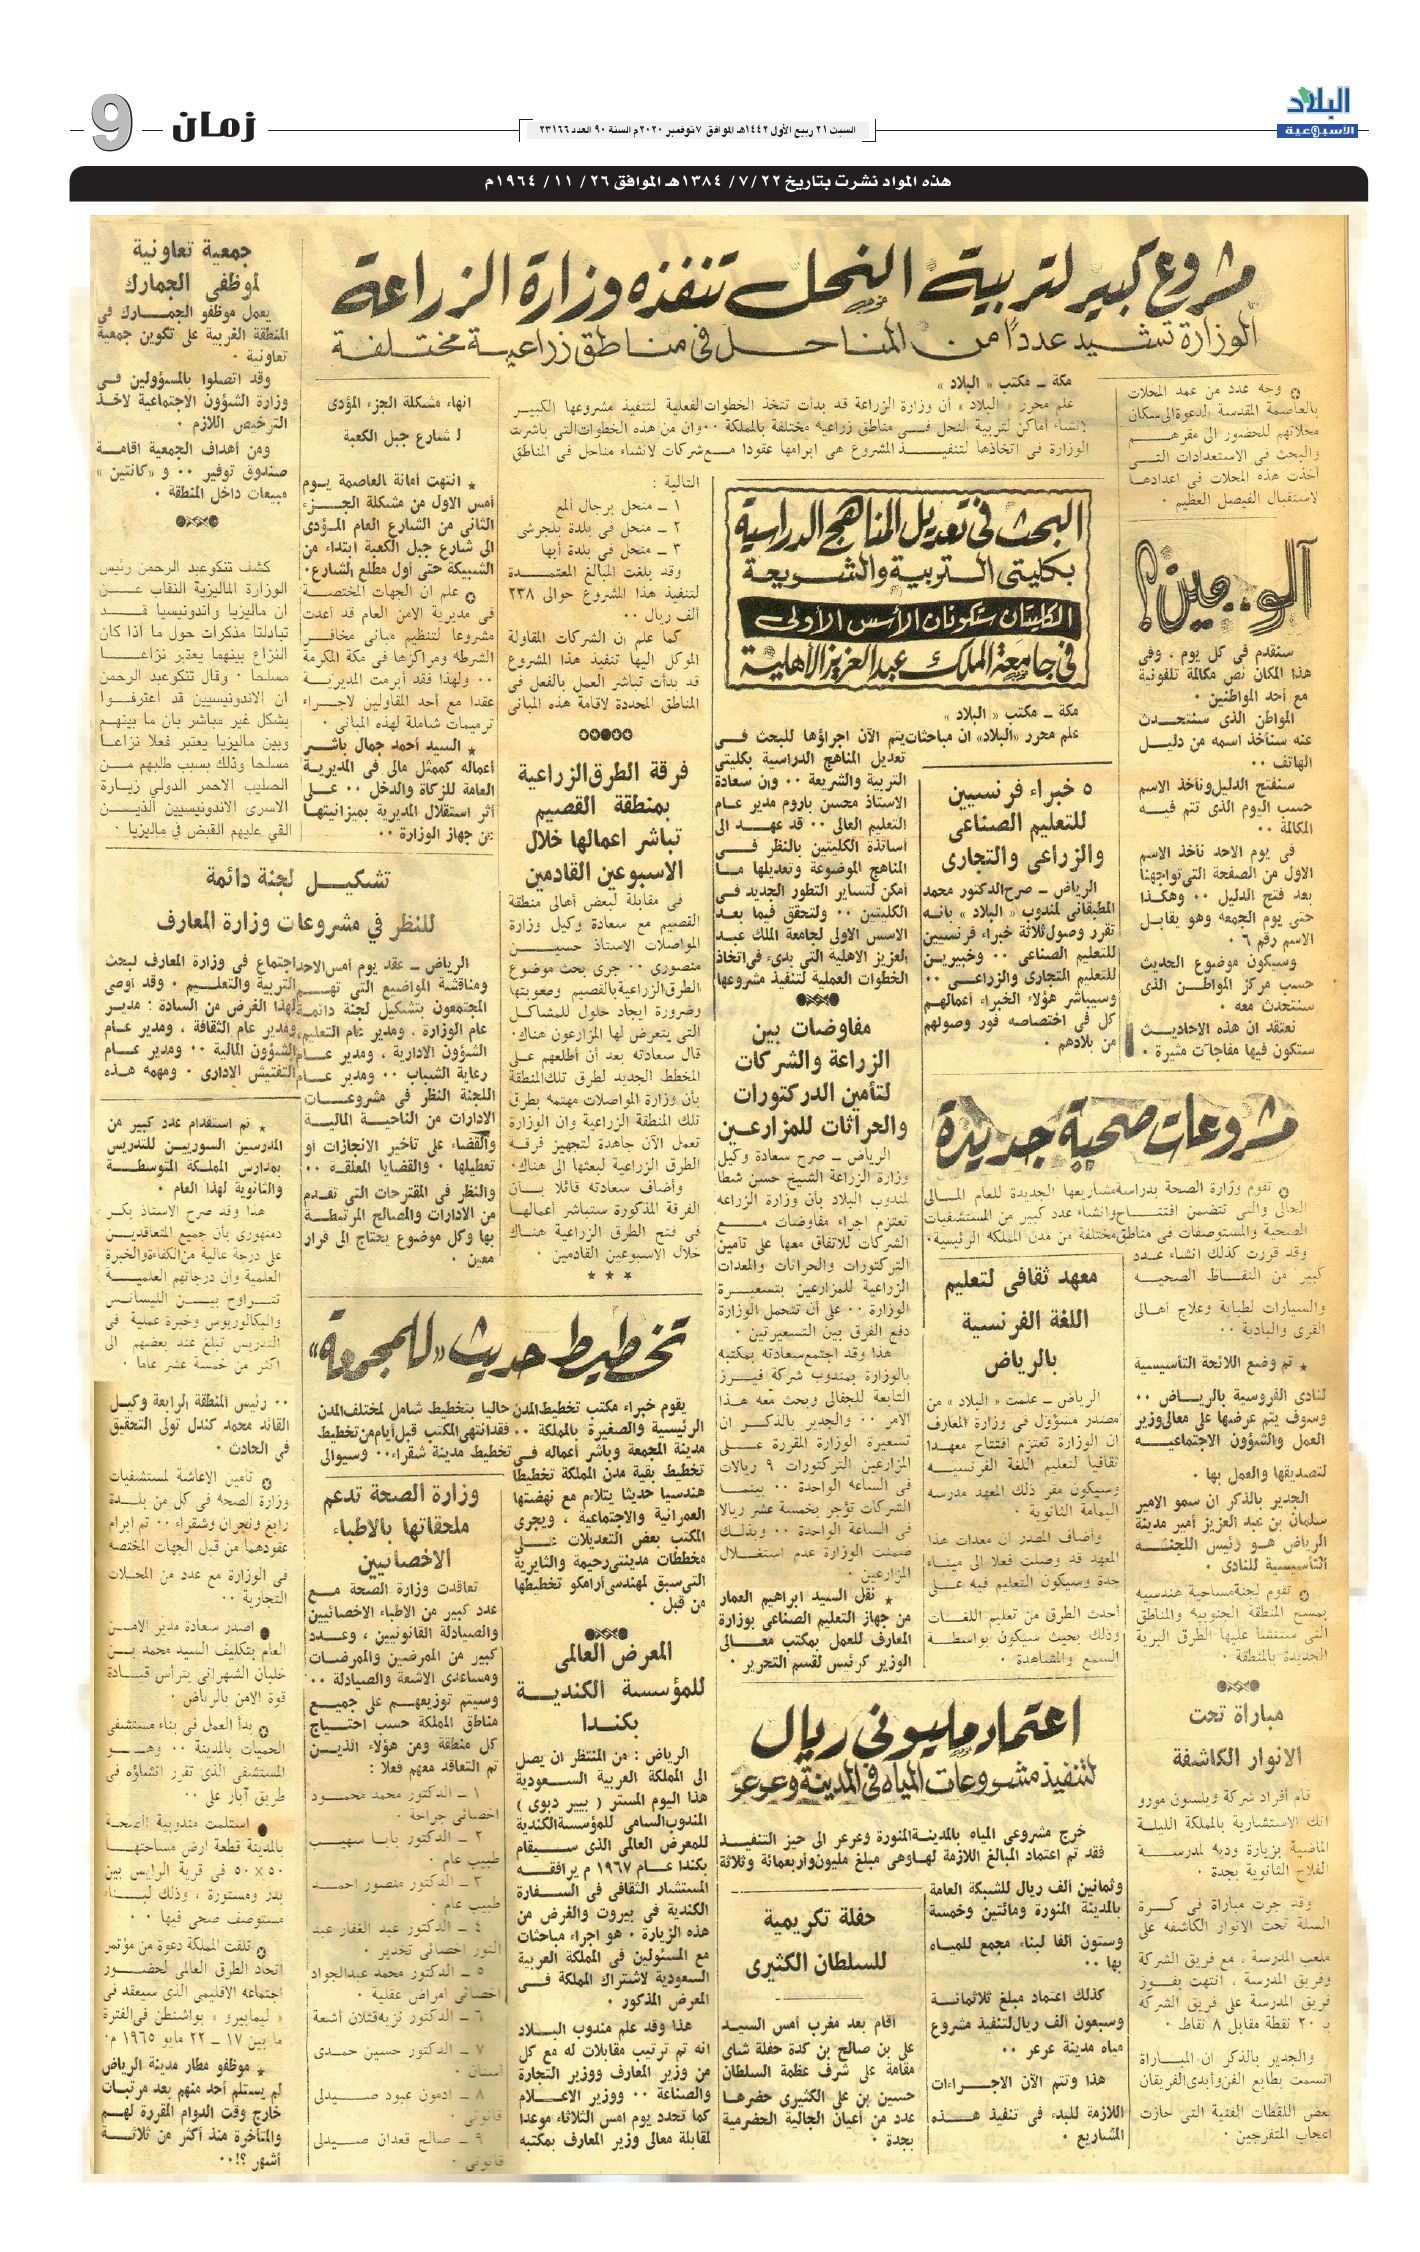 البلاد
الأسبوعية
السبت ٢١ ربيع الأول ١٤٤٢هـ الموافق ٧ نوفمبر ٢٠٢٠م السنة ٩٠ العدد ٢٣١٦٦
زمان
9
هذه المواد نشرت بتاريخ ٢٢ /٧/ ١٣٨٤هـ الموافق ٢٦ /١١ /١٩٦٤م
مشروع كبير لتربية النحل تنفذه وزارة الزراعة
الوزارة تشيد عددًا من المناحل في مناطق زراعية مختلفة
وجه عدد من عمد المحلات
بالعاصمة المقدسة الدعوة الى سكان
محلاتهم للحضور الى مقرهم
والبحث في الاستعدادات التي
أخذت هذه المحلات في اعدادها
لاستقبال الفيصل العظيم ٠
آلو.. مين؟
سنقدم في كل يوم ، وفي
هذا المكان نص مكالمة تلفونية
مع أحد المواطنين ٠
المواطن الذى سنتحدث
عنه سنأخذ اسمه من دليل
الهاتف ٠٠
سنفتح الدليل ونأخذ الاسم
حسب اليوم الذى تتم فيه
المكالمة ٠٠
في يوم الاحد نأخذ الاسم
الاول من الصفحة التي تواجهنا
بعد فتح الدليل ٠٠ وهكذا
حتى يوم الجمعه وهو يقابل
الاسم رقم ٦ ٠
وسيكون موضوع الحديث
حسب مركز المواطن الذى
سنتحدث معه ٠
نعتقد ان هذه الاحاديث
ستكون فيها مفاجآت مثيرة ٠
مكة ــ مكتب « البلاد »
علم محرر « البلاد » أن وزارة الزراعة قد بدأت تتخذ الخطوات الفعلية لتنفيذ مشروعها الكبير
لانشاء أماكن لتربية النحل في مناطق زراعيه مختلفة بالمملكة ٠٠ وان من هذه الخطوات التي باشرت
الوزارة في اتخاذها لتنفيذ المشروع هي ابرامها عقودا مع شركات لانشاء مناحل في المناطق
التالية :
١ ــ منحل برجال المع
٢ ــ منحل في بلدة بلجرشى
٣ ــ منحل في بلدة أبها
وقد بلغت المبالغ المعتمدة
لتنفيذ هذا المشروع حوالى ٢٣٨
ألف ريال ٠٠
كما علم ان الشركات المقاولة
الموكل اليها تنفيذ هذا المشروع
قد بدأت تباشر العمل بالفعل في
المناطق المحددة لاقامة هذه المبانى
البحث في تعديل المناهج الدراسية
بكليتي التربية والشريعة
الكليتان ستكونان الأسس الأولى
في جامعة الملك عبد العزيز الأهلية
مكة ــ مكتب « البلاد »
علم محرر «البلاد» ان مباحثات يتم الآن اجراؤها للبحث في
تعديل المناهج الدراسية بكليتي
التربية والشريعة ٠٠ وان سعادة
الاستاذ محسن باروم مدير عام
التعليم العالى ٠٠ قد عهد الى
أساتذة الكليتين بالنظر في
المناهج الموضوعة وتعديلها ما
أمكن لتساير التطور الجديد في
الكليتين ٠٠ ولتحقق فيما بعد
الاسس الاولى لجامعة الملك عبد
العزيز الاهلية التي بدىء في اتخاذ
الخطوات العملية لتنفيذ مشروعها
٥ خبراء فرنسيين
للتعليم الصناعي
والزراعي والتجارى
الرياض ــ صرح الدكتور محمد
المطبقاني لمندوب « البلاد » بانه
تقرر وصول ثلاثة خبراء فرنسيين
للتعليم الصناعي ٠٠ وخبيرين
للتعليم التجارى والزراعى ٠٠
وسيباشر هؤلاء الخبراء أعمالهم
كل في اختصاصه فور وصولهم
من بلادهم ٠
مفاوضات بين
الزراعة والشركات
لتأمين الدركتورات
والحراثات للمزارعين
الرياض ــ صرح سعادة وكيل
وزارة الزراعة الشيخ حسن شطا
لمندوب البلاد بأن وزارة الزراعه
تعتزم اجراء مفاوضات مع
الشركات للاتفاق معها على تأمين
التركتورات والحراثات والمعدات
الزراعية للمزارعين بتسعيرة
الوزارة ٠٠ على أن تتحمل الوزارة
دفع الفرق بين التسعيرتين ٠
هذا وقد اجتمع سعادته بمكتبه
بالوزارة بمندوب شركة فيرز
التابعة للجفالى وبحث معه هذا
الامر ٠٠ والجدير بالذكر ان
تسعيرة الوزارة المقررة على
المزارعين التركتورات ٩ ريالات
في الساعه الواحدة ٠٠ بينما
الشركات تؤجر بخمسة عشر ريالا
في الساعة الواحدة ٠٠ وبذلك
ضمنت الوزارة عدم استغلال
المزارعين ٠
★ نقل السيد ابراهيم العمار
من جهاز التعليم الصناعي بوزارة
المعارف للعمل بمكتب معالى
الوزير كرئيس لقسم التحرير ٠
مشروعات صحية جديدة
تقوم وزارة الصحة بدراسة مشاريعها الجديدة للعام المالى
الحالى والتي تتضمن افتتاح وانشاء عدد كبير من المستشفيات
الصحية والمستوصفات في مناطق مختلفة من مدن المملكة الرئيسية٠
وقد قررت كذلك انشاء عدد
كبير من النقاط الصحيه
والسيارات لطبابة وعلاج أهالى
القرى والبادية ٠٠
★ تم وضع اللائحة التأسيسية
لنادى الفروسية بالرياض ٠٠
وسوف يتم عرضها على معالى وزير
العمل والشؤون الاجتماعيه
لتصديقها والعمل بها ٠
الجدير بالذكر ان سمو الامير
سلمان بن عبد العزيز أمير مدينة
الرياض هو رئيس اللجنه
التأسيسية للنادى ٠
تقوم لجنة مساحية هندسيه
بمسح المنطقة الجنوبية والمناطق
التي ستنشأ عليها الطرق البرية
الجديدة بالمنطقة ٠
معهد ثقافي لتعليم
اللغة الفرنسية
بالرياض
الرياض ــ علمت « البلاد » من
مصدر مسؤول في وزارة المعارف
ان الوزارة تعتزم افتتاح معهدا
ثقافيا لتعليم اللغة الفرنسيه
وسيكون مقر ذلك المعهد مدرسه
اليمامة الثانوية ٠
واضاف المصدر ان معدات هذا
المعهد قد وصلت فعلا الى ميناء
جدة وسيكون التعليم فيه على
أحدث الطرق من تعليم اللغات
وذلك بحيث سيكون بواسطة
السمع والمشاهدة ٠
مباراة تحت
الانوار الكاشفة
قام أفراد شركة ويلسون مورو
انك الاستشارية بالمملكة الليلة
الماضية بزيارة وديه لمدرسة
الفلاح الثانوية بجدة ٠
وقد جرت مباراة في كرة
السلة تحت الانوار الكاشفه على
ملعب المدرسة ، مع فريق الشركة
وفريق المدرسة ، انتهت بفوز
فريق المدرسة على فريق الشركة
بـ ٢٠ نقطة مقابل ٨ نقاط ٠
والجدير بالذكر ان المباراة
اتسمت بطابع الفن وأبدى الفريقان
بعض اللقطات الفنية التي حازت
اعجاب المتفرجين ٠
اعتماد مليوني ريال
لتنفيذ مشروعات المياه في المدينة وعرعر
خرج مشروعى المياه بالمدينة المنورة وعرعر الى حيز التنفيذ
فقد تم اعتماد المبالغ اللازمة لها وهي مبلغ مليون وأربعمائة وثلاثة
وثمانين ألف ريال للشبكة العامة
بالمدينة المنورة ومائتين وخمسة
وستون ألفا لبناء مجمع للمياه
بها ٠٠
كذلك اعتماد مبلغ ثلاثمائة
وسبعون ألف ريال لتنفيذ مشروع
مياه مدينة عرعر ٠٠
هذا وتتم الآن الاجراءات
اللازمة للبدء في تنفيذ هذه
المشاريع ٠
حفلة تكريمية
للسلطان الكثيرى
أقام بعد مغرب أمس السيد
على بن صالح بن كدة حفلة شاى
مقامة على شرف عظمة السلطان
حسين بن على الكثيرى حضرها
عدد من أعيان الجالية الحضرمية
بجدة ٠
فرقة الطرق الزراعية
بمنطقة القصيم
تباشر اعمالها خلال
الاسبوعين القادمين
في مقابلة لبعض أهالى منطقة
القصيم مع سعادة وكيل وزارة
المواصلات الاستاذ حسين
منصورى ٠٠ جرى بحث موضوع
الطرق الزراعية بالقصيم وصعوبتها
وضرورة ايجاد حلول للمشاكل
التي يتعرض لها المزارعون هناك٠
قال سعادته بعد أن أطلعهم على
المخطط الجديد لطرق تلك المنطقة
بأن وزارة المواصلات مهتمه بطرق
تلك المنطقة الزراعية وان الوزارة
تعمل الآن جاهدة لتجهيز فرقه
الطرق الزراعية لبعثها الى هناك٠
وأضاف سعادته قائلا بأن
الفرقة المذكورة ستباشر أعمالها
في فتح الطرق الزراعية هناك
خلال الاسبوعين القادمين ٠
★ ★ ★
انهاء مشكلة الجزء المؤدى
لشارع جبل الكعبة
★ انتهت أمانة العاصمة يوم
أمس الاول من مشكلة الجزء
الثانى من الشارع العام المؤدى
الى شارع جبل الكعبة ابتداء من
الشبيكة حتى أول مطلع الشارع٠
علم ان الجهات المختصة
في مديرية الامن العام قد أعدت
مشروعا لتنظيم مبانى مخافر
الشرطه ومراكزها في مكة المكرمة
٠٠ ولهذا فقد أبرمت المديرية
عقدا مع أحد المقاولين لاجراء
ترميمات شاملة لهذه المباني ٠
★ السيد أحمد جمال باشر
أعماله كممثل مالى في المديرية
العامة للزكاة والدخل ٠٠ على
أثر استقلال المديرية بميزانيتها
عن جهاز الوزارة ٠٠
جمعية تعاونية
لموظفي الجمارك
يعمل موظفو الجمارك في
المنطقة الغربية على تكوين جمعية
تعاونية ٠
وقد اتصلوا بالمسؤولين في
وزارة الشؤون الاجتماعية لاخذ
الترخيص اللازم ٠
ومن أهداف الجمعية اقامة
صندوق توفير ٠٠ و «كانتين»
مبيعات داخل المنطقة ٠
كشف تنكو عبد الرحمن رئيس
الوزارة الماليزية النقاب عن
ان ماليزيا واندونيسيا قد
تبادلتا مذكرات حول ما اذا كان
النزاع بينهما يعتبر نزاعا
مسلحا ٠ وقال تنكو عبد الرحمن
ان الاندونيسيين قد اعترفوا
بشكل غير مباشر بان ما بينهم
وبين ماليزيا يعتبر فعلا نزاعا
مسلحا وذلك بسبب طلبهم من
الصليب الاحمر الدولي زيارة
الاسرى الاندونيسيين الذين
القي عليهم القبض في ماليزيا ٠
تشكيل لجنة دائمة
للنظر في مشروعات وزارة المعارف
الرياض ــ عقد يوم أمس الاحد اجتماع في وزارة المعارف لبحث
ومناقشة المواضيع التي تهم التربية والتعليم ٠ وقد أوصى
المجتمعون بتشكيل لجنة دائمة لهذا الغرض من السادة : مدير
عام الوزارة ، ومدير عام التعليم ومدير عام الثقافة ، ومدير عام
الشؤون الادارية ، ومدير عام الشؤون المالية ٠٠ ومدير عام
رعاية الشباب ٠٠ ومدير عام التفتيش الادارى ٠ ومهمه هذه
اللجنة النظر في مشروعات
الادارات من الناحية المالية
والقضاء على تأخير الانجازات أو
تعطيلها ٠ والقضايا المعلقة ٠٠
والنظر في المقترحات التي تقدم
من الادارات والمصالح المرتبطة
بها وكل موضوع يحتاج الى قرار
معين ٠
★ تم استقدام عدد كبير من
المدرسين السوريين للتدريس
بمدارس المملكة المتوسطة
والثانوية لهذا العام ٠
هذا وقد صرح الاستاذ بكر
دمنهورى بأن جميع المتعاقدين
على درجة عالية من الكفاءة والخبرة
العلمية وأن درجاتهم العلمية
تتراوح بين الليسانس
والبكالوريوس وخبرة عملية في
التدريس تبلغ عند بعضهم الى
اكثر من خمسة عشر عاما ٠
تخطيط حديث «للمجمعة»
يقوم خبراء مكتب تخطيط المدن حاليا بتخطيط شامل لمختلف المدن
الرئيسية والصغيرة بالمملكة ٠٠ فقد انتهى المكتب قبل أيام من تخطيط
مدينة المجمعة وباشر أعماله في تخطيط مدينة شقراء ٠٠ وسيوالى
تخطيط بقية مدن المملكة تخطيطا
هندسيا حديثا يتلاءم مع نهضتها
العمرانية والاجتماعية ، ويجرى
المكتب بعض التعديلات على
مخططات مدينتى رحيمة والثايرية
التى سبق لمهندسى أرامكو تخطيطها
من قبل ٠
المعرض العالمى
للمؤسسة الكندية
بكندا
الرياض : من المنتظر ان يصل
الى المملكة العربية السعودية
هذا اليوم المستر ( بيير دبوى )
المندوب السامى للمؤسسة الكندية
للمعرض العالمى الذى سيقام
بكندا عام ١٩٦٧ م يرافقه
المستشار الثقافى في السفارة
الكندية في بيروت والغرض من
هذه الزيارة ٠ هو اجراء مباحثات
مع المسئولين في المملكة العربية
السعودية لاشتراك المملكة في
المعرض المذكور ٠
هذا وقد علم مندوب البلاد
انه تم ترتيب مقابلات له مع كل
من وزير المعارف ووزير التجارة
والصناعة ٠٠ ووزير الاعلام
كما تحدد يوم امس الثلاثاء موعدا
لمقابلة معالى وزير المعارف بمكتبه
وزارة الصحة تدعم
ملحقاتها بالاطباء
الاخصائيين
تعاقدت وزارة الصحة مع
عدد كبير من الاطباء الاخصائيين
والصيادلة القانونيين ، وعدد
كبير من الممرضين والممرضات
ومساعدى الاشعة والصيادلة ٠٠
وسيتم توزيعهم على جميع
مناطق المملكة حسب احتياج
كل منطقة ومن هؤلاء الذين
تم التعاقد معهم فعلا :
١ ــ الدكتور محمد محمود
اخصائى جراحة ٠
٢ ــ الدكتور بابا سهيب
طبيب عام ٠
٣ ــ الدكتور منصور احمد
طبيب عام ٠
٤ ــ الدكتور عبد الغفار عبد
النور اخصائى تخدير ٠
٥ ــ الدكتور محمد عبدالجواد
اخصائى امراض عقلية ٠
٦ ــ الدكتور نزيه قتلان أشعة
٧ ــ الدكتور حسين حمدى
أسنان ٠
٨ ــ ادمون عبود صيدلى
قانونى ٠
٩ ــ صالح قعدان صيدلى
قانونى ٠
٠٠ رئيس المنطقة الرابعة وكيل
القائد محمد كندل تولى التحقيق
في الحادث ٠
تأمين الاعاشة لمستشفيات
وزارة الصحه في كل من بلدة
رابغ ونجران وشقراء ٠٠ تم ابرام
عقودهما من قبل الجهات المختصه
في الوزارة مع عدد من المحلات
التجارية ٠٠
● اصدر سعادة مدير الامن
العام بتكليف السيد محمد بن
خليان الشهرانى يترأس قيادة
قوة الامن بالرياض ٠
بدأ العمل في بناء مستشفى
الحميات بالمدينة ٠٠ وهو
المستشفى الذى تقرر انشاؤه في
طريق آبار على ٠٠
● استلمت مندوبية الصحة
بالمدينة قطعة ارض مساحتها
٥٠×٥٠ في قرية الرايس بين
بدر ومستورة ، وذلك لبناء
مستوصف صحى فيها ٠٠
تلقت المملكة دعوة من مؤتمر
اتحاد الطرق العالمى لحضور
اجتماعه الاقليمى الذى سيعقد في
« ليمابيرو » بواشنطن في الفترة
ما بين ١٧ ــ ٢٢ مايو ١٩٦٥ م٠
★ موظفو مطار مدينة الرياض
لم يستلم أحد منهم بعد مرتبات
خارج وقت الدوام المقررة لهم
والمتأخرة منذ أكثر من ثلاثة
أشهر ؟!٠٠